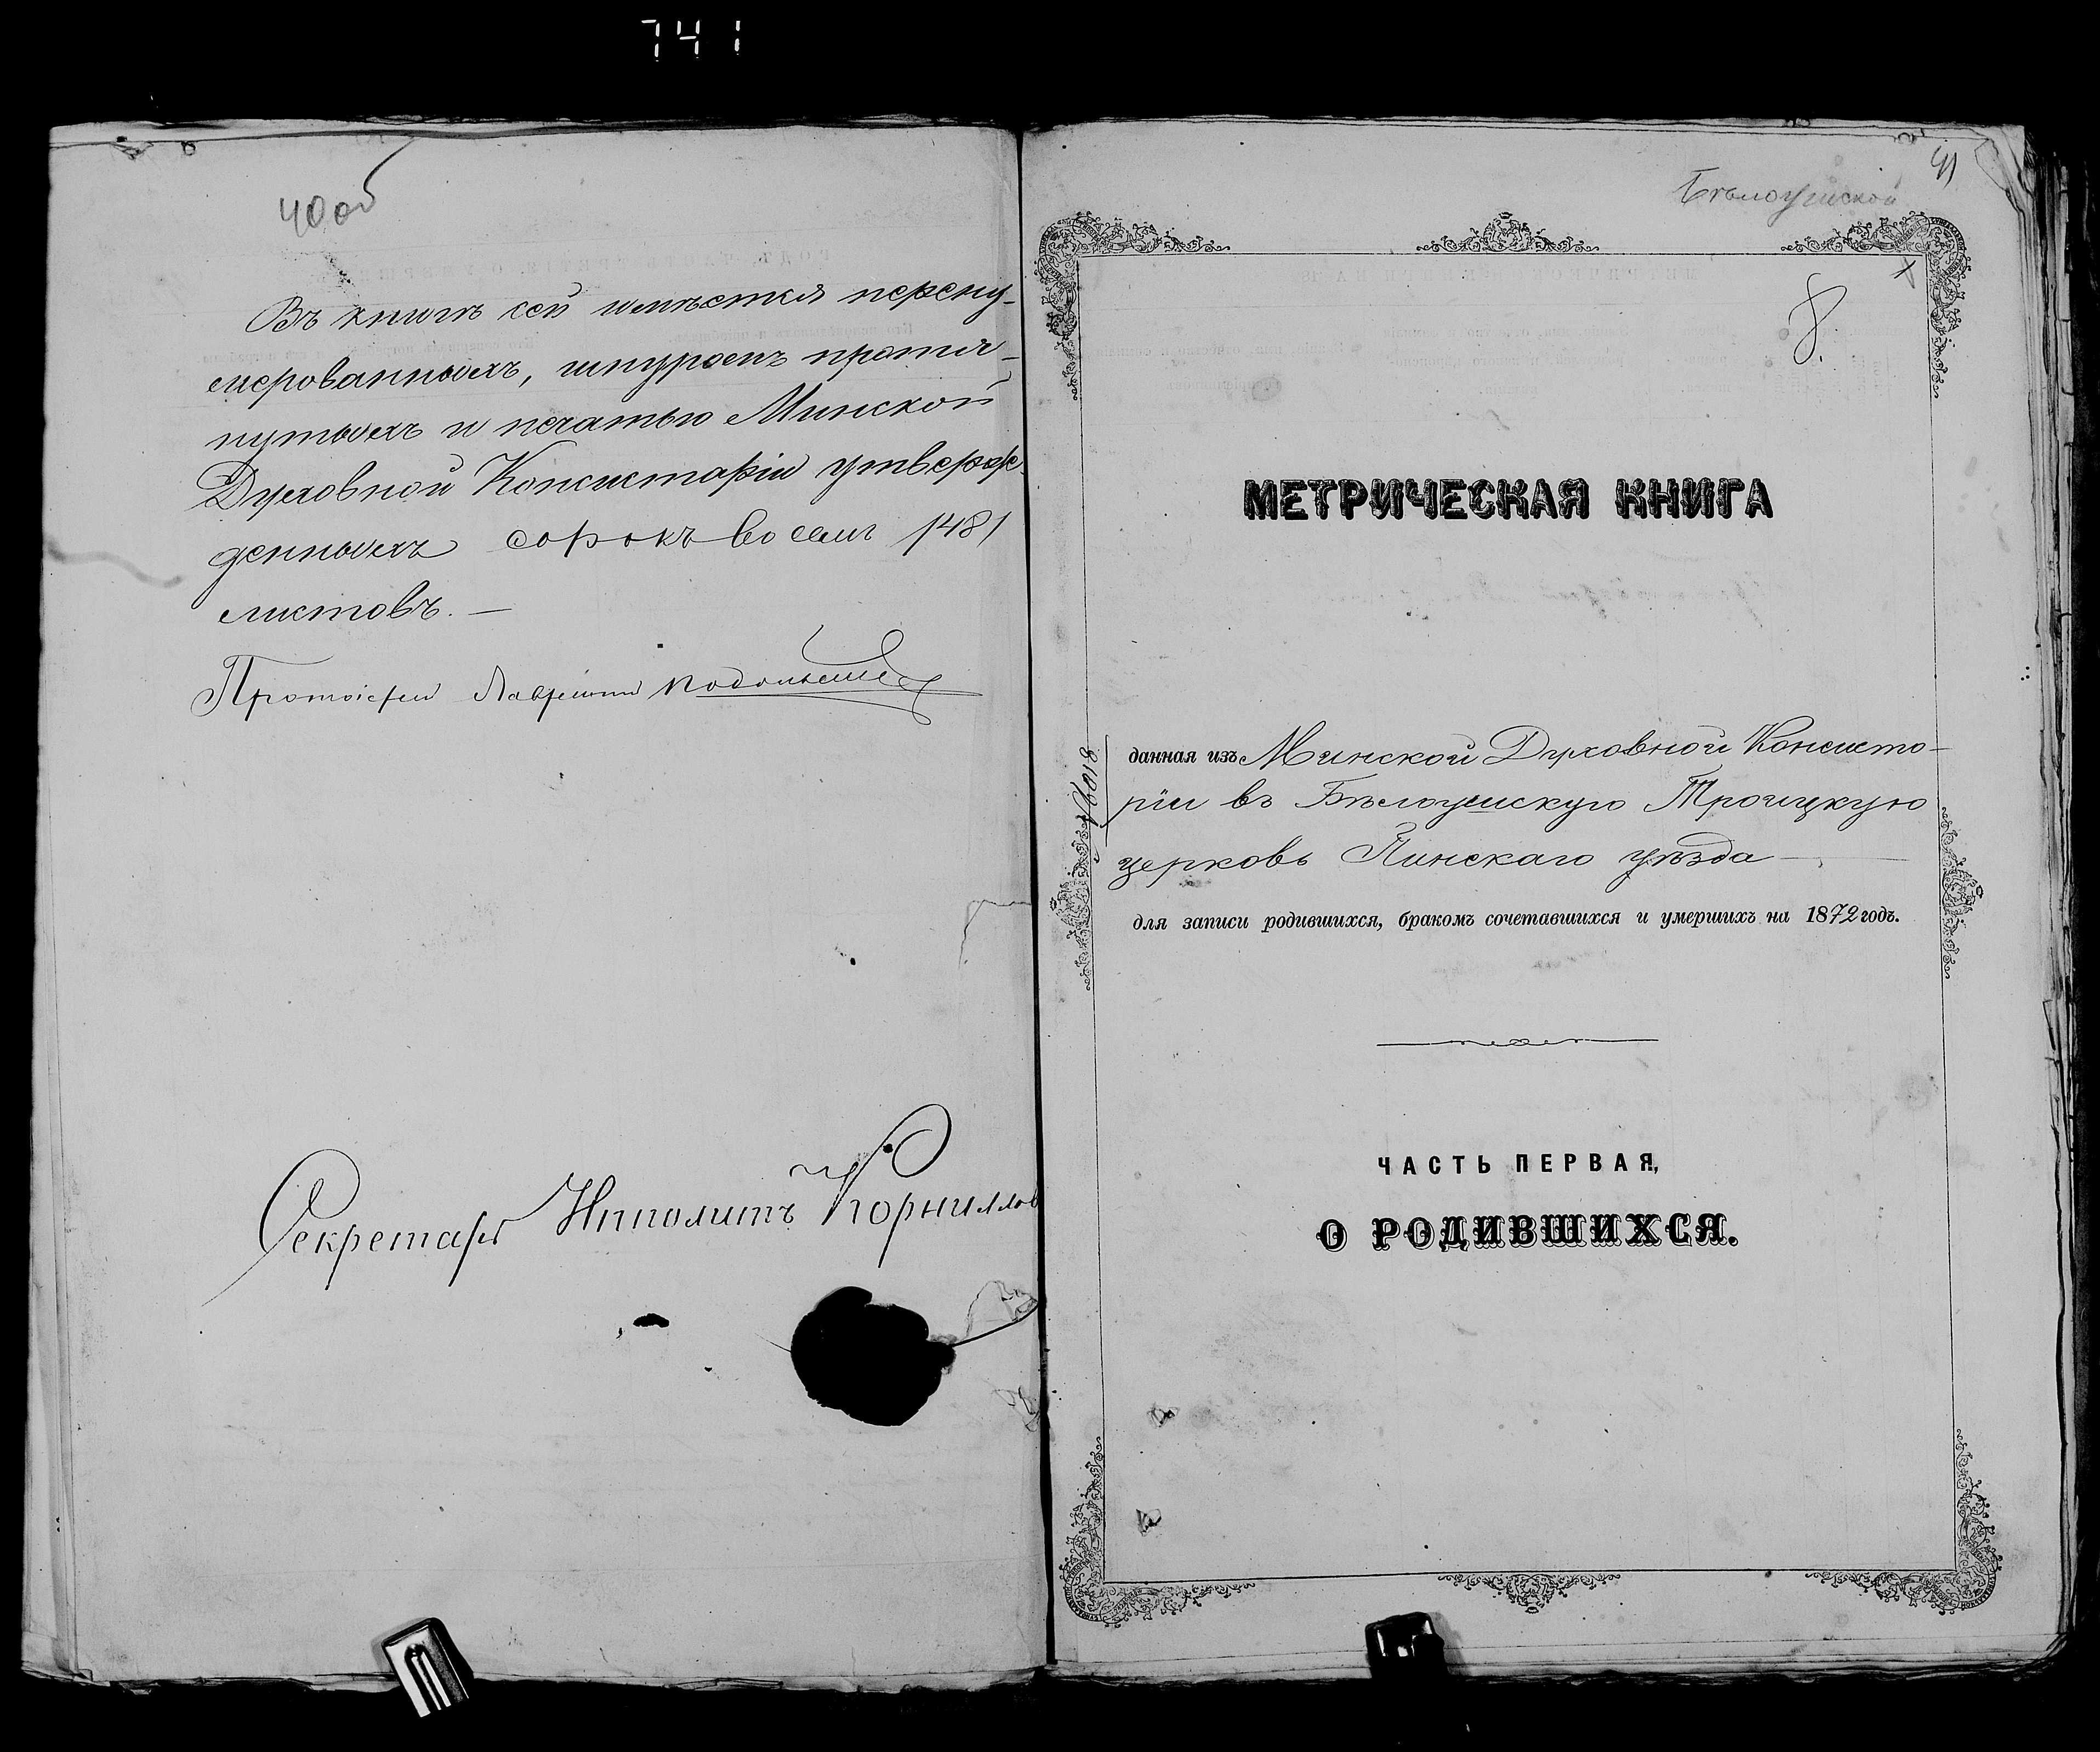 741
40 об
Въ книгѣ сей имѣется перену-
мерованныхъ, шнуромъ протя-
нутыхъ и печатью Минской
Духовной Консисторіи утверж-
денныхъ сорокъ восемь /48/
листовъ. —
Протоіерей Лаврентій
Секретарь Ипполитъ Корнилов
41
Бѣлоушской
8.
МЕТРИЧЕСКАЯ КНИГА
данная изъ Минской Духовной Консисто-
ріи въ Бѣлоушскую Троицкую
церковь Пинскаго уѣзда —
для записи родившихся, бракомъ сочетавшихся и умершихъ на 1872 годъ.
ЧАСТЬ ПЕРВАЯ,
О РОДИВШИХСЯ.